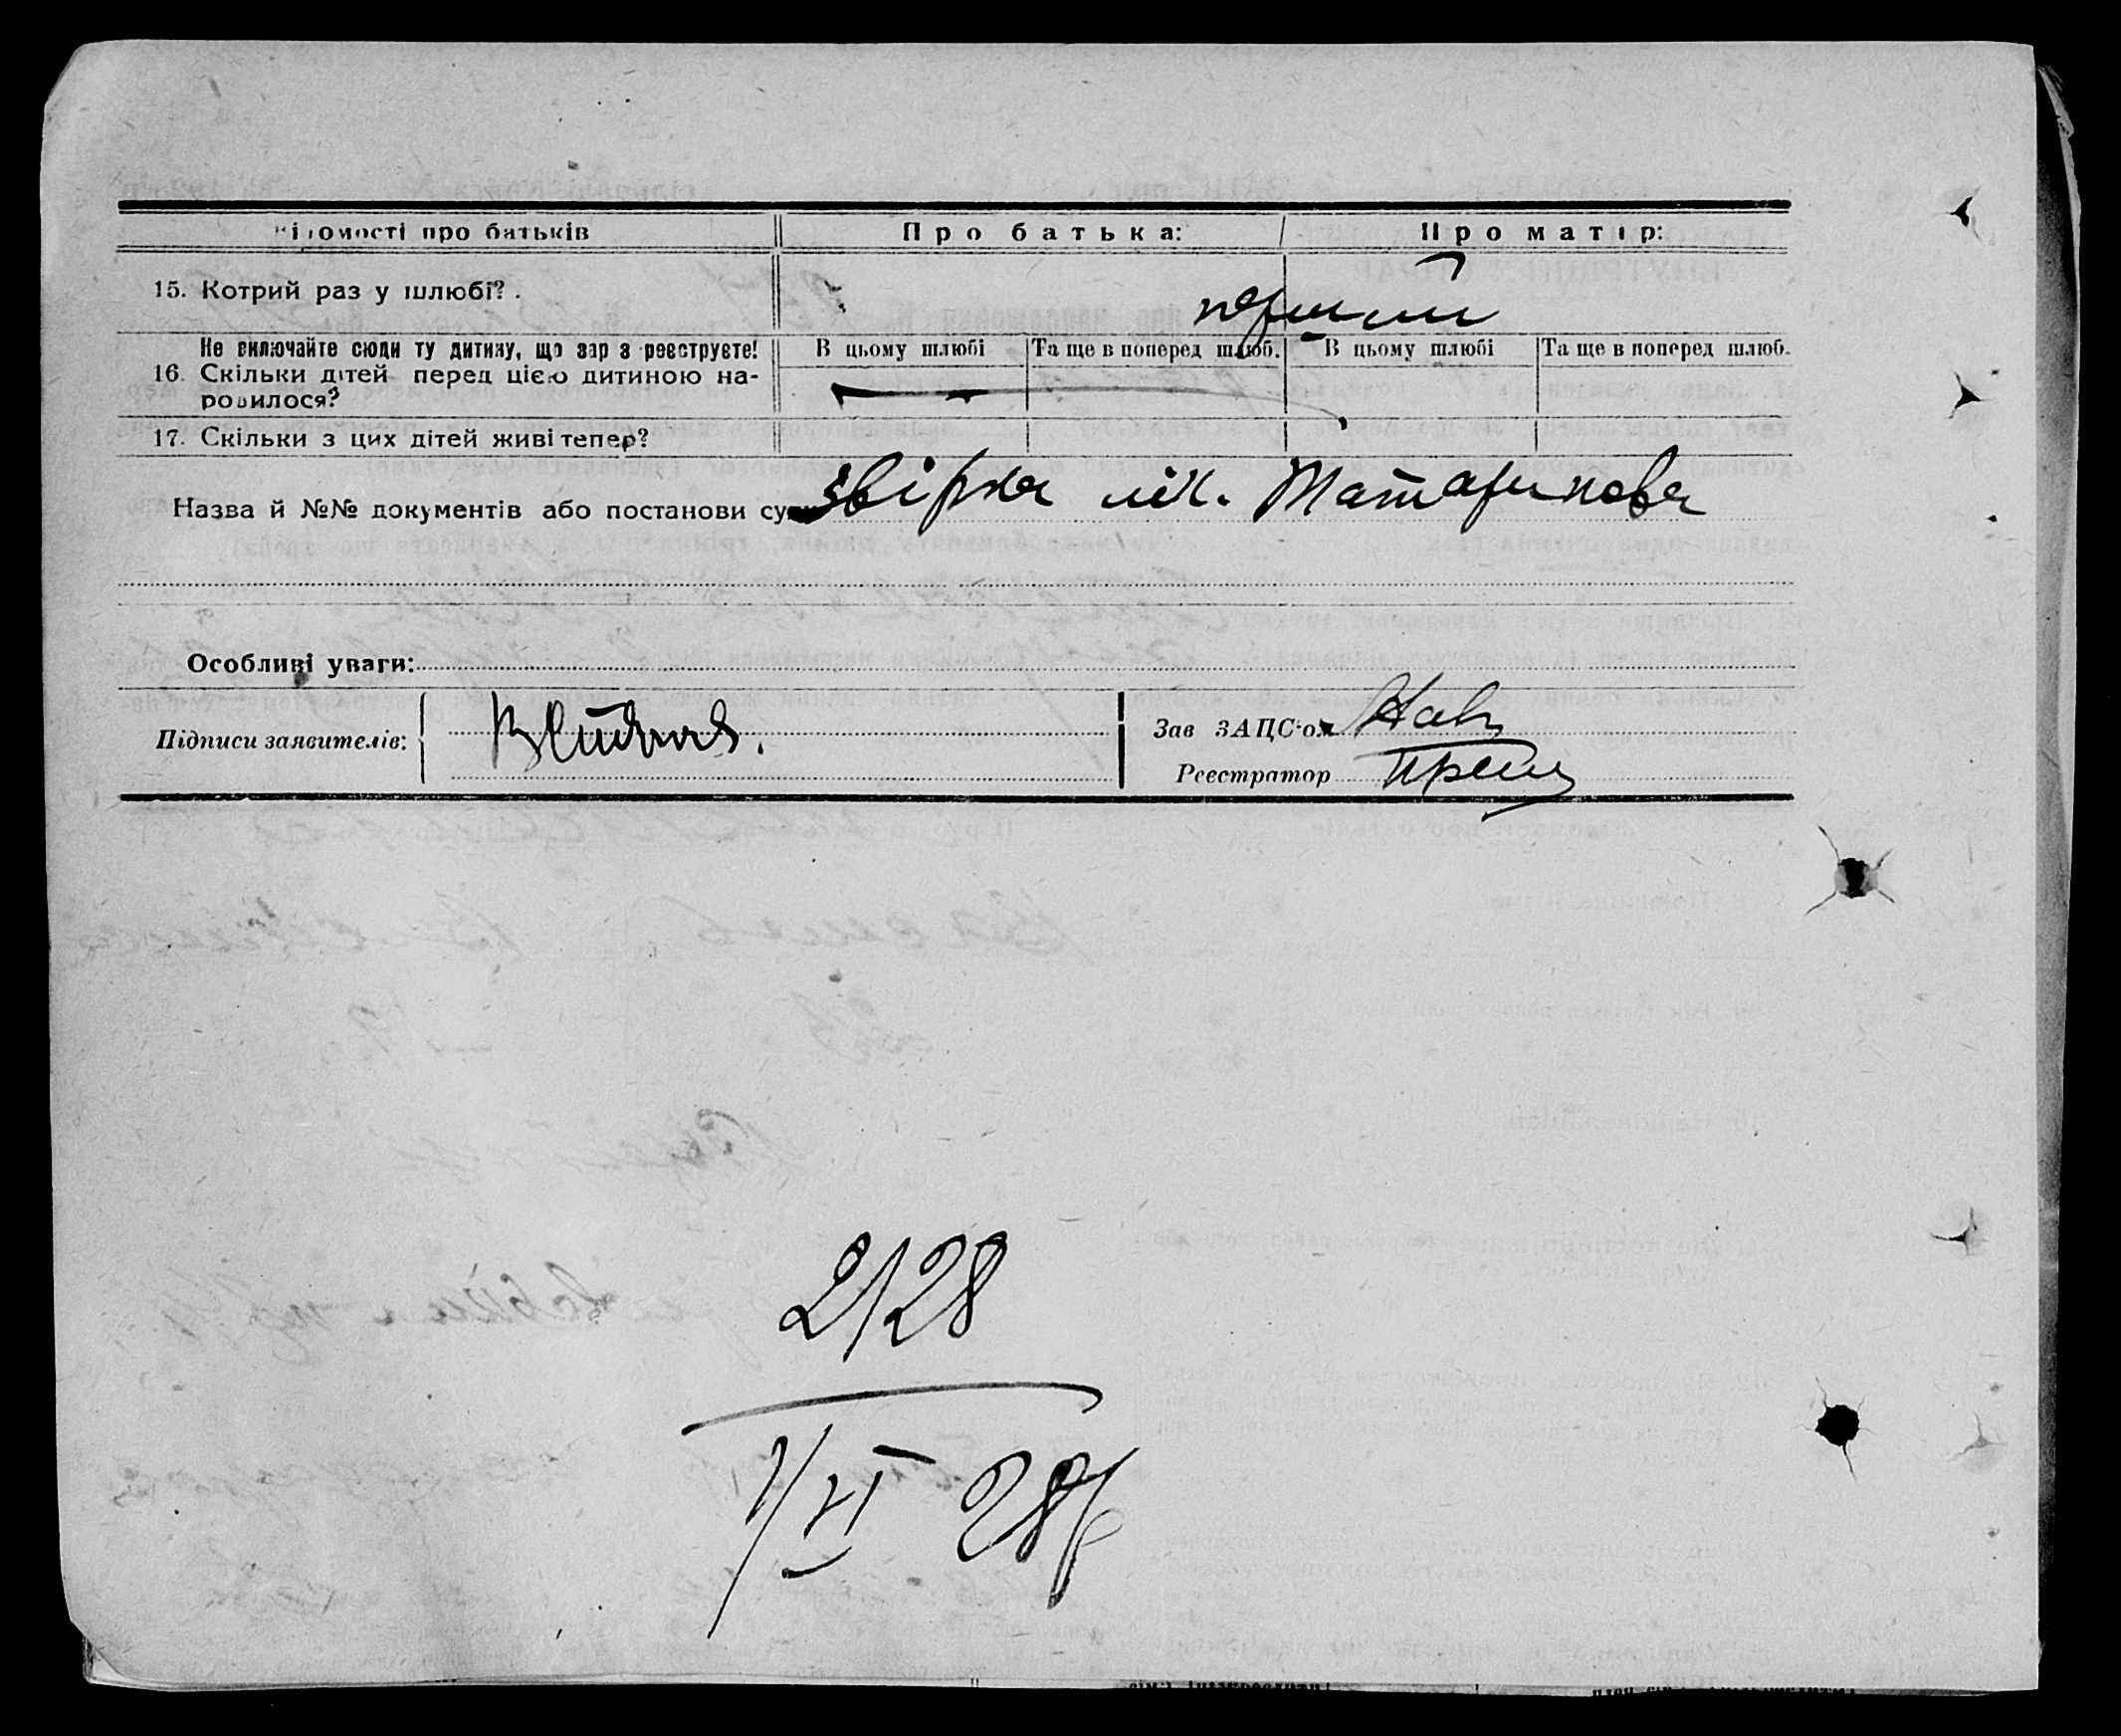 ідомості про батьків Про батька: Про матір:
15. Котрий раз у шлюбі? . перший
Не виключайте сюди ту дитину, що зар з реєструєте! В цьому шлюбі Та ще в поперед шлюб. В цьому шлюбі Та ще в поперед шлюб.
16. Скільки дітей перед цією дитиною на-
родилося? —
17. Скільки з цих дітей живі тепер?
Назва й №№ документів або постанови суду звірка лік. Татаринова
Особливі уваги:
Підписи заявителів:
Зав ЗАЦС-ом
Реєстратор
2128
1/VI 28р